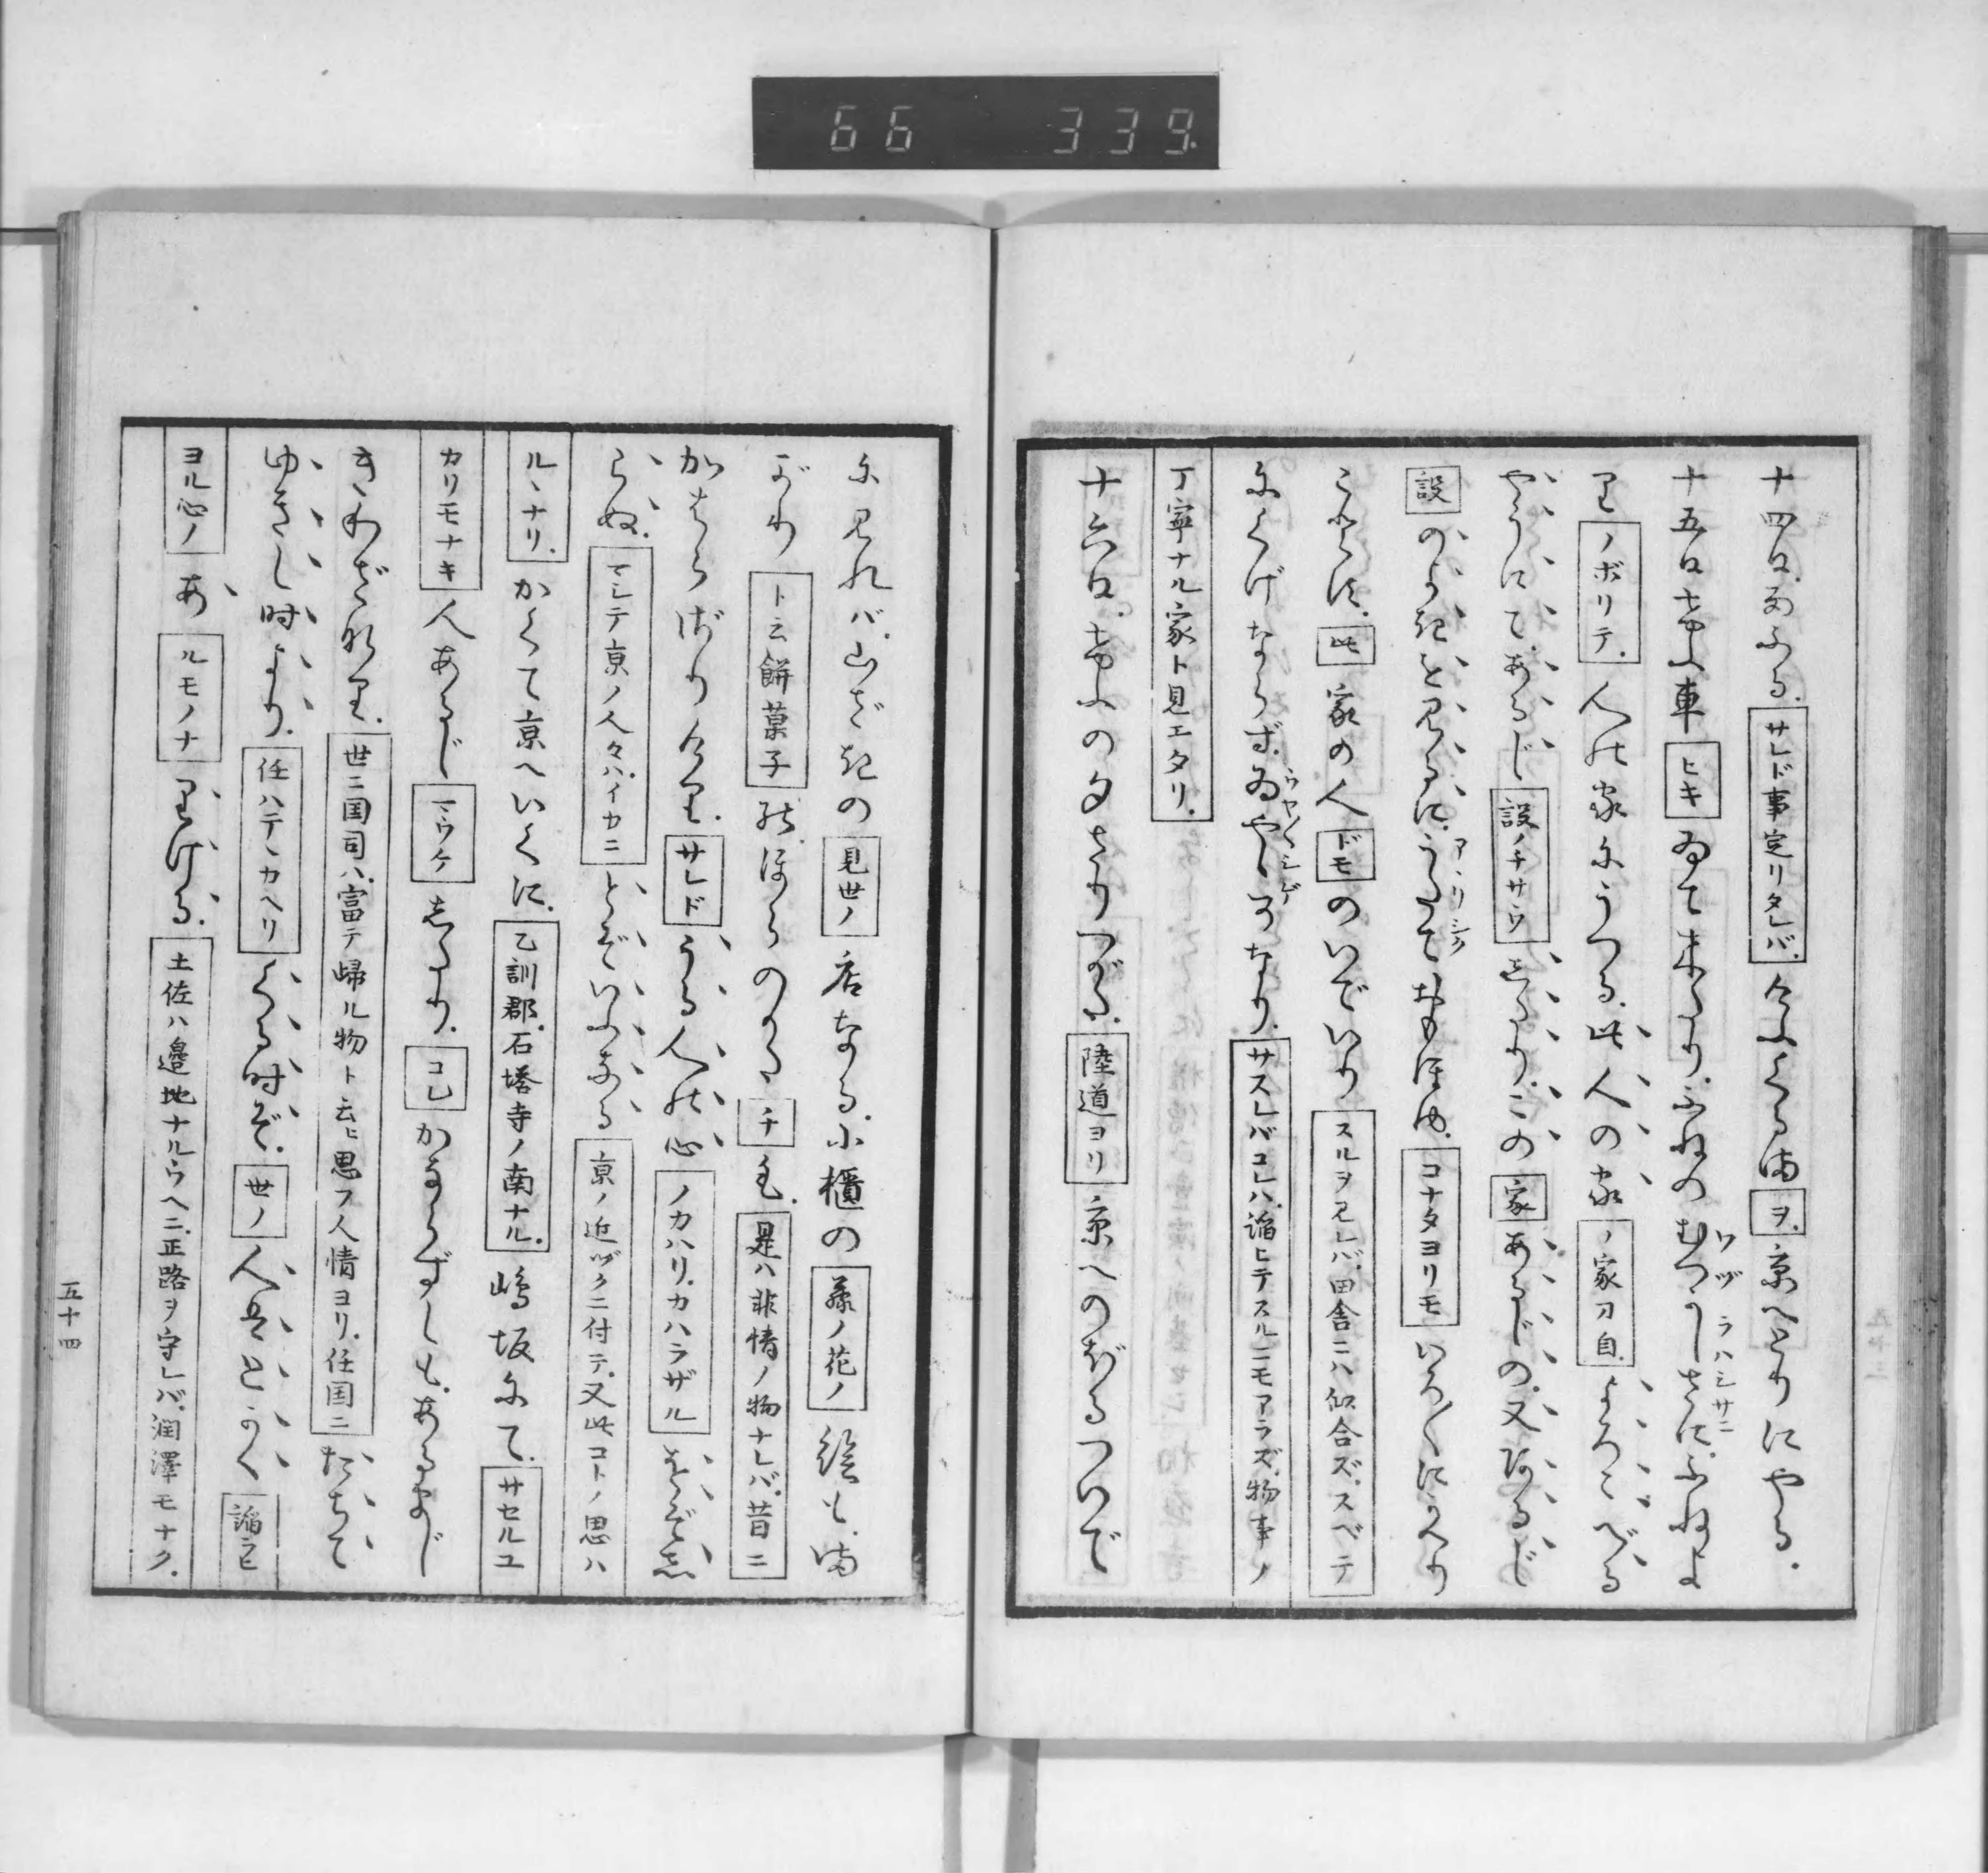 66 339
十四日。あめふる。サレド事定リタレバ。けふくるまヲ。京へとりにやる。
十五日けふ車ヒキゐて来たり。ふねのむつかしさに。ふねよ
ワヅラハシサニ
りノボリテ。人の家にうつる。此人の家ノ家刀自。よろこべる
やうにて。あるじ設ノチサウしたり。この家あるじの。又あるじ
設のよきを見るに。うたておもほゆ。コナタヨリモいろ〳〵にかへり
ア、リシク
ごとす。此家の人ドモのいでいりスルヲ見レバ。田舎ニハ似合ズ。スベテ
にくげならず。ゐやゝかなり。サスレバコレハ。諂ヒテスルニモアラズ。物事ノ
ウヤ〳〵シゲ
丁寧ナル家ト見エタリ。
十六日。けふの夕さりつがた。陸道ヨリ京へのぼるついで
に見れバ。山ざきの見世ノ店なる。小櫃の藤ノ花ノ絵も。ま
がりト云餅菓子の。ほらのかたチも。是ハ非情ノ物ナレバ。昔ニ
かはらざりけり。サレドうる人の心ノカハリ。カハラザルをぞし
らぬ。マシテ京ノ人々ハ。イカニとぞいふなる京ノ近ヅクニ付テ。又此コトノ思ハ
ルヽナリ。かくて京へいくに。乙訓郡。石塔寺ノ南ナル。嶋坂にて。サセルユ
カリモナキ人あるじマウケしたり。コレかならずしも。あるまじ
きわざなり。世ニ国司ハ。富テ歸ル物ト云ヒ思フ人情ヨリ。任国ニたちて
ゆきし時より。任ハテヽカヘリくる時ぞ。世ノ人はとかく諂ラヒ
ヨル心ノあルモノナりける。土佐ハ邉地ナルウヘニ。正路ヲ守レバ。潤澤モナク。
五十四